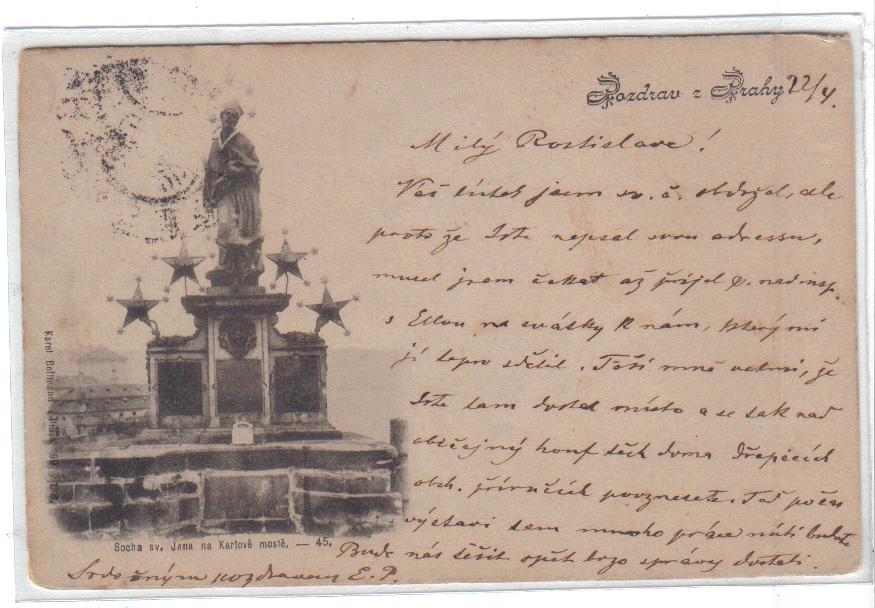 Pozdrav z Prahy 22/4.
Milý Rostislave!
Váš lístek jsem sv. č. obdržel, ale
proto že Jste nepsal svou adressu,
musel jsem čekat až přijel p. nadinsp.
s Ellou na svátky k nám, který mi
ji teprv sdělil. Těší mně velmi, že
Jste tam dostal místo a se tak nad
obyčejný houf těch doma
obch. příručích povznesete. Teď počas
výstavi tam mnoho práce míti budete
Bude nás těšit opět brzo zprávy dostati.
Srdečným pozdravem E. P.
Socha sv. Jana na Karlově mostě. — 45.
Karel Bellmann Prag 99 178.